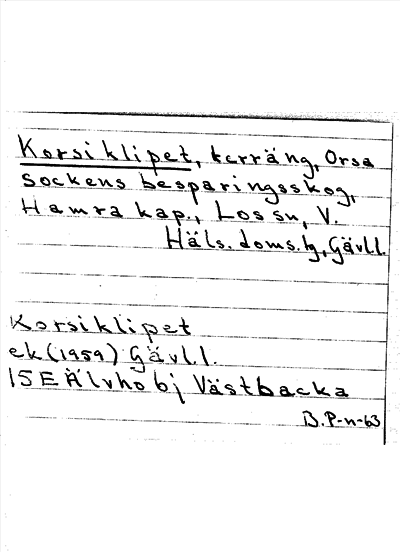 Korsiklipet, terräng, Orsa
Sockens besparingsskog,
Hamra kap., Los sn, V.
Häls. doms.lg, Gävll.
Korsiklipet
ek (1959) Gävll.
15E Älvho 6j Västbacka
B.P-n-63